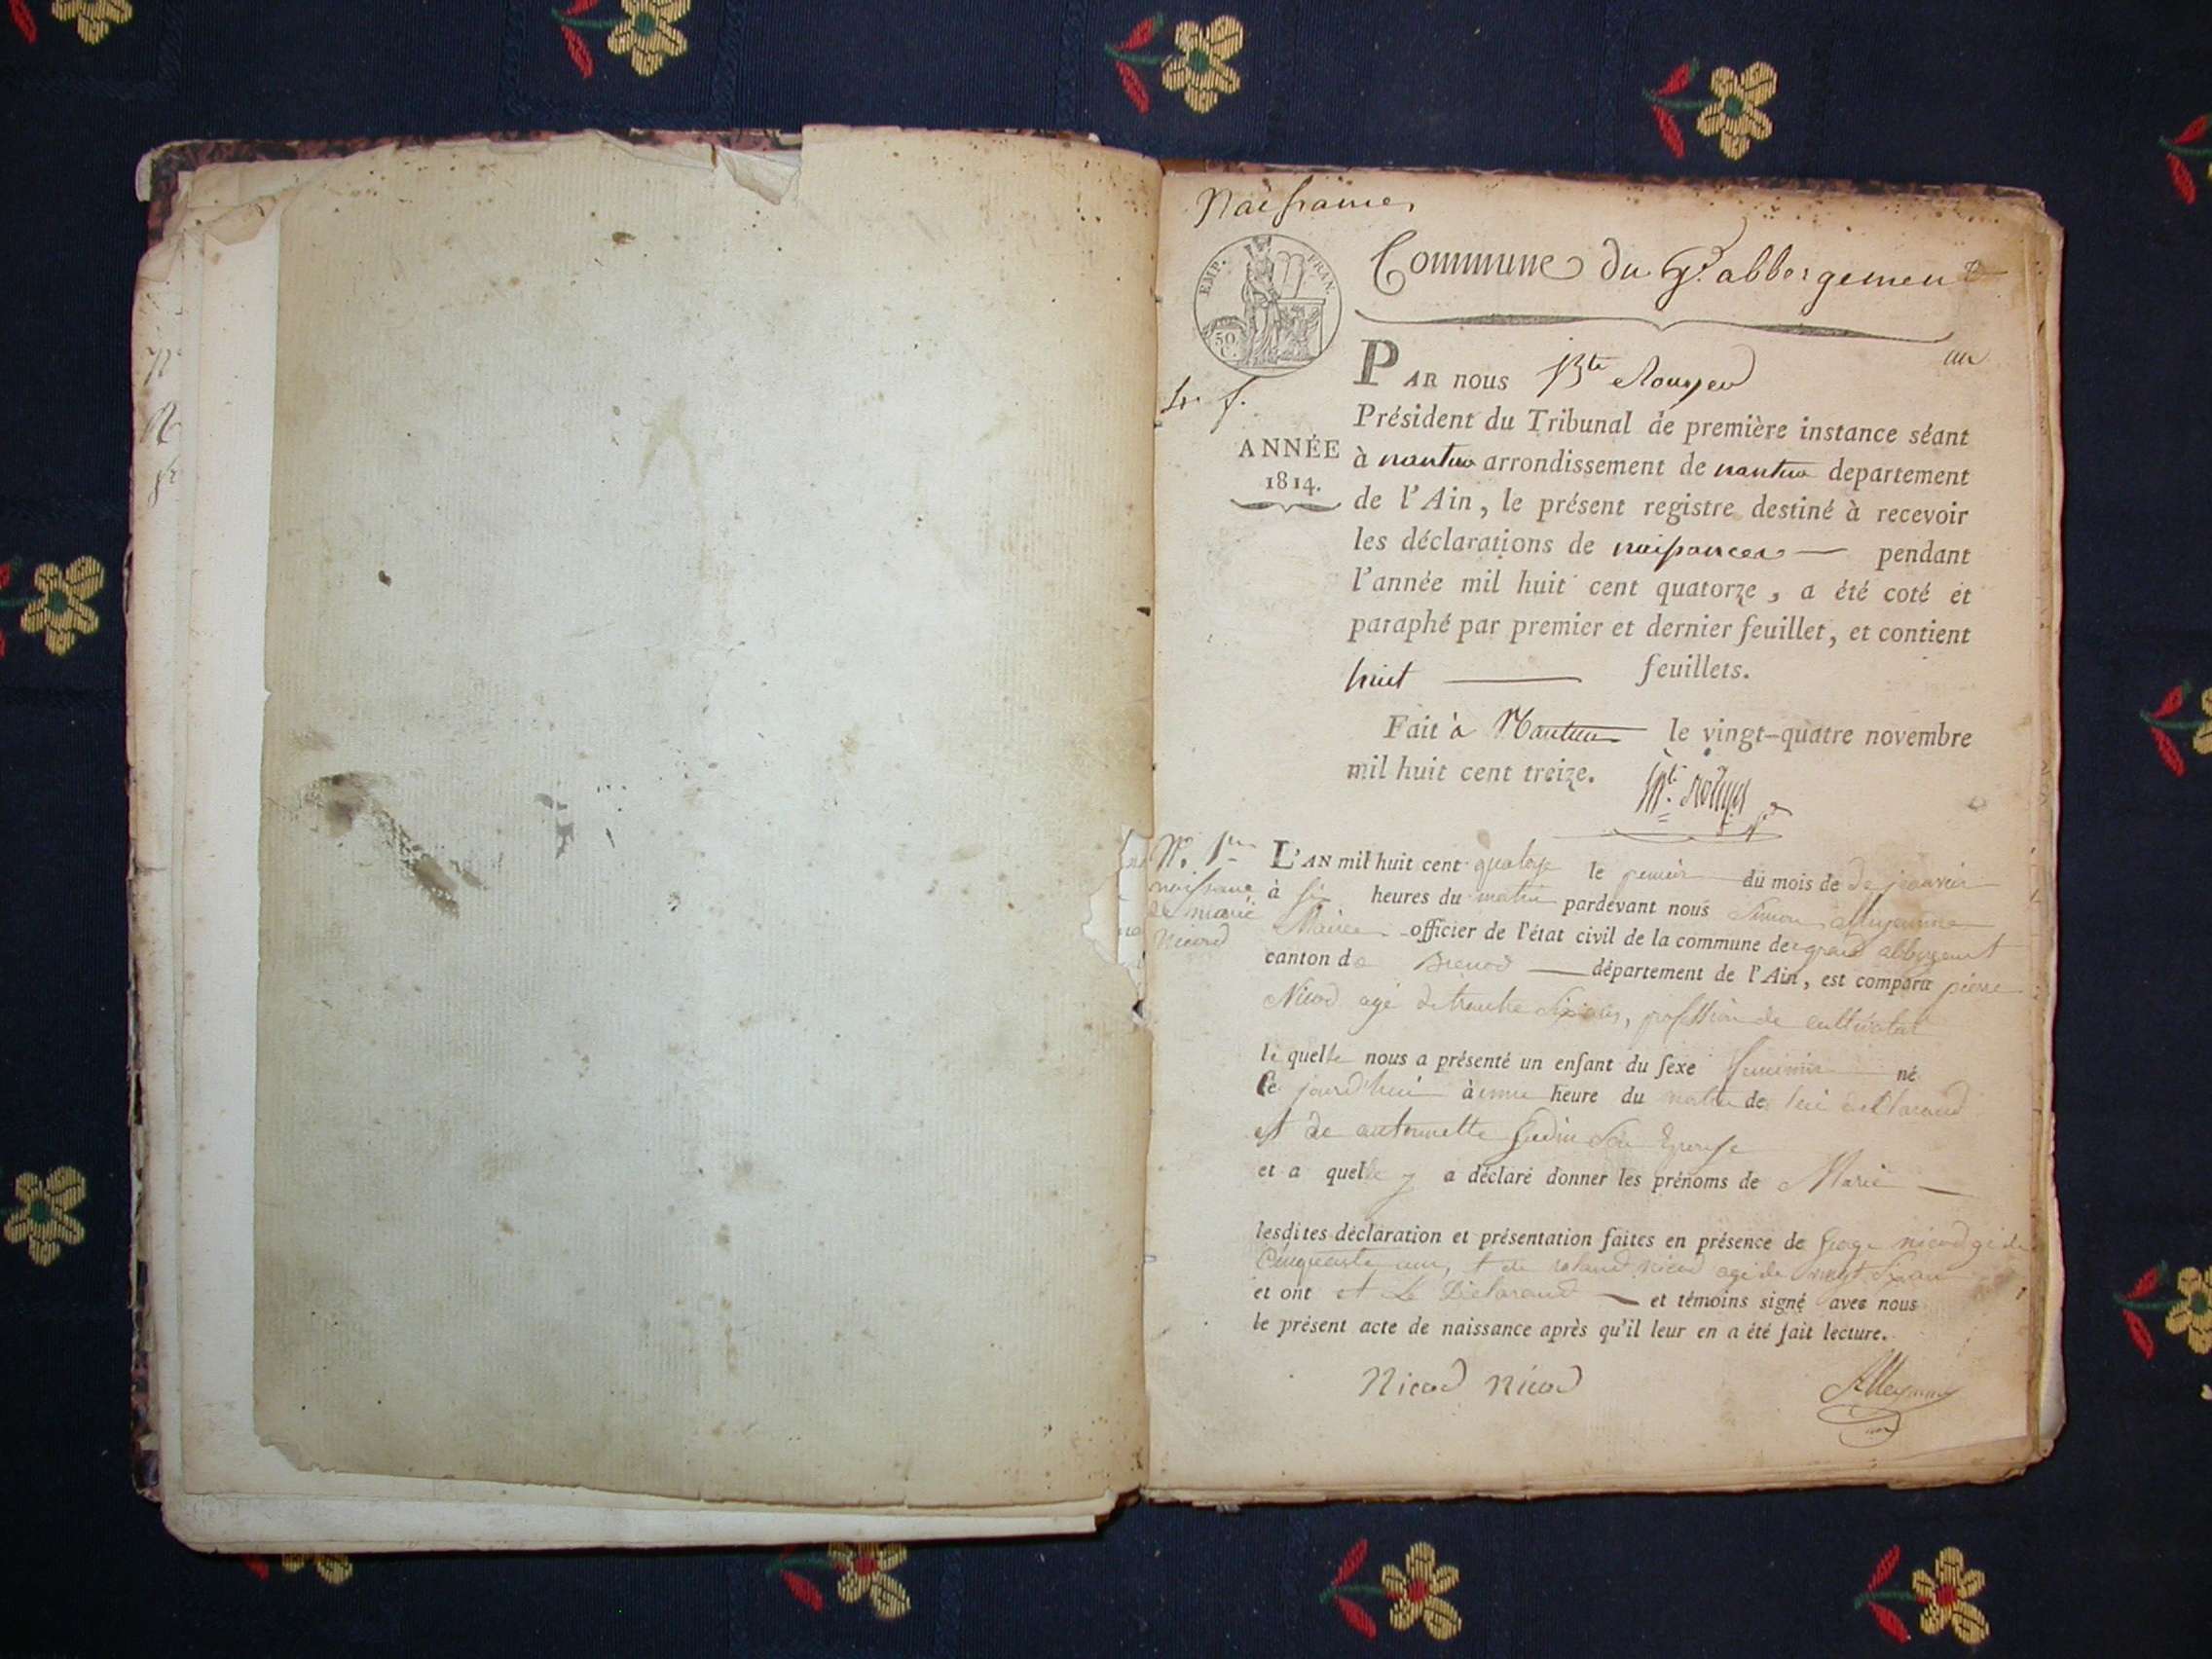 Naissances
EMP. FRAN.
50 C.
Commune du Gd abbergement
un
PAR nous Bte Rouyer
4. f.
Président du Tribunal de première instance séant
ANNÉE
1814.
à nantua arrondissement de nantua departement
de l'Ain, le présent registre destiné à recevoir
les déclarations de naissances — pendant
l'année mil huit cent quatorze, a été coté et
paraphé par premier et dernier feuillet, et contient
huit — feuillets.
Fait à Nantua le vingt-quatre novembre
mil huit cent treize.
N.o 1er
naissance
de marie
nicod
L'AN mil huit cent quatorze le premier du mois de de janvier
à six heures du matin pardevant nous Simon
Maire officier de l'état civil de la commune de grand abbergement
canton de Brenod — département de l'Ain, est comparu pierre
Nicod agé de trente six ans, profession de cultivateur
le quelle nous a présenté un enfant du sexe feminin né
ce jourd'hui à une heure du matin de lui déclarand
et de antoinette Epouse
et a quelle y a déclaré donner les prénoms de Marie —
lesdites déclaration et présentation faites en présence de nicod
Cinquante et de roland nicod agé de vingt six ans
et ont et Le Déclarand — et témoins signé avec nous
le présent acte de naissance après qu'il leur en a été fait lecture.
Nicod Nicod